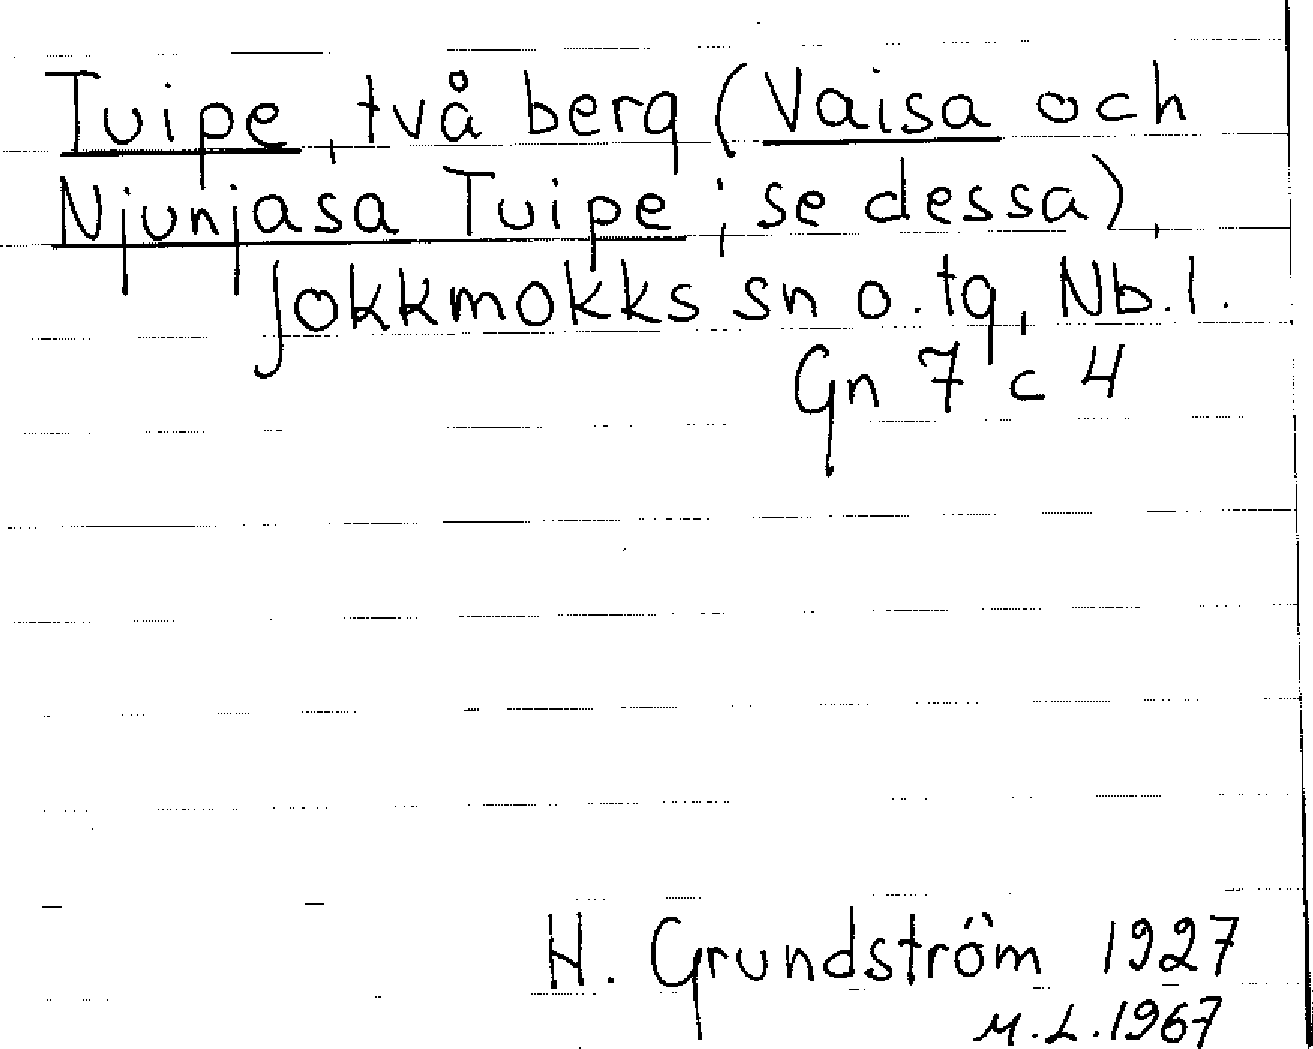 Tuipe, två berg (Vaisa och
Njunjasa Tuipe; se dessa),
Jokkmokks sn o. tg, Nb. l.
Gn 7 c 4
H. Grundström 1927
M.L. 1967